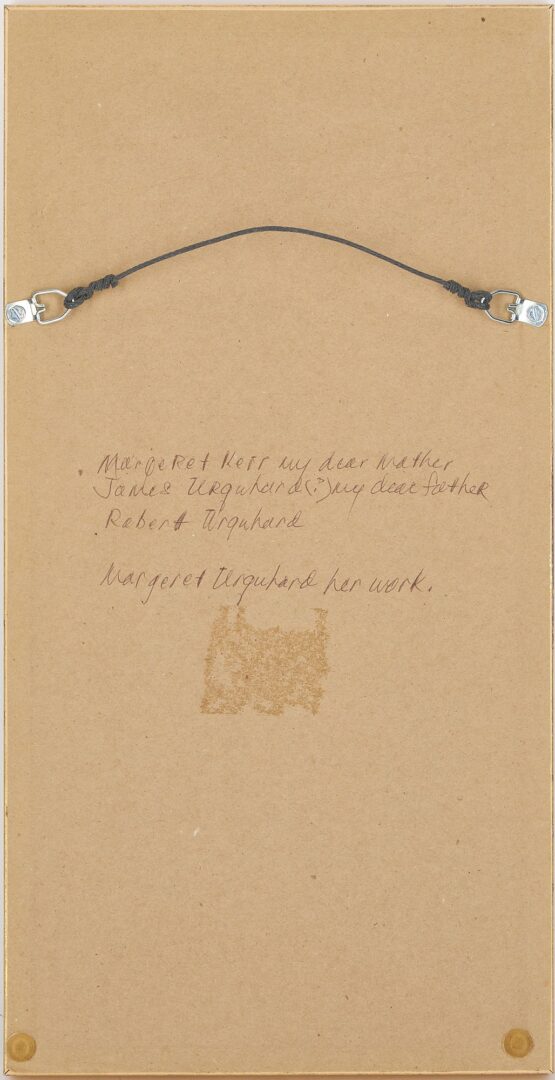 Margeret Kerr my dear Mather
James Urquhard(?) my dear father
Robert Urquhard
Margeret Urquhard her work.